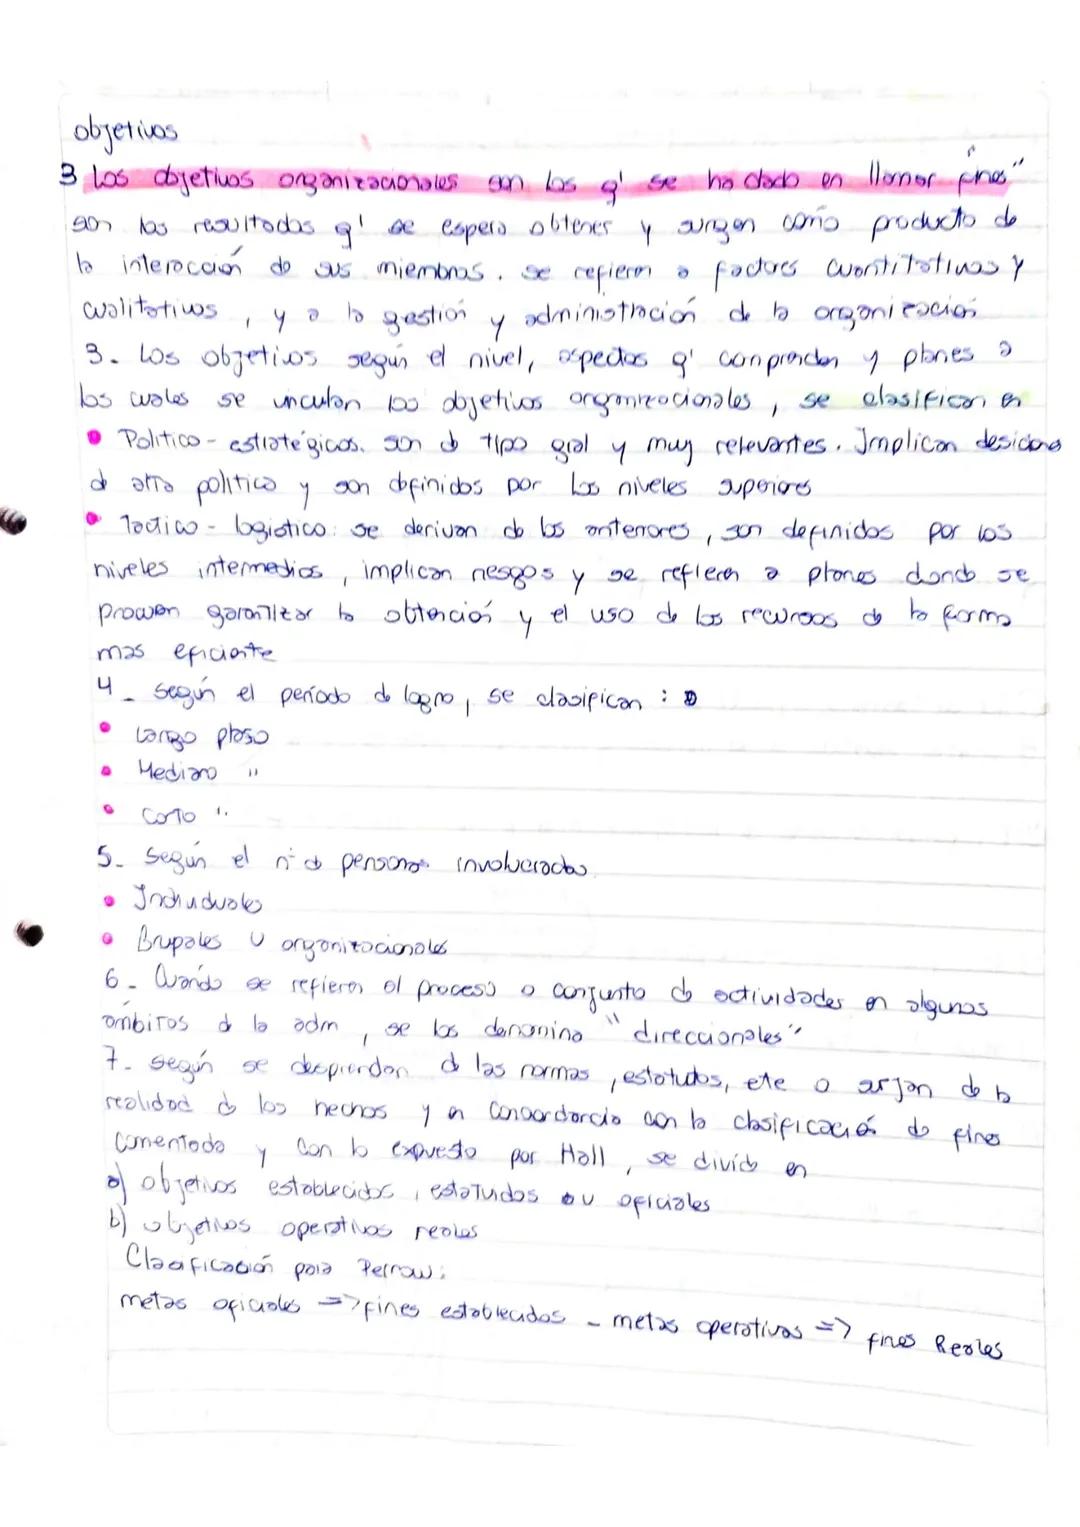 objetivos
3 Los objetivos organizacionales son los q' se ha dado en llamar "fines"
son los resultados q' se espera obtener y surgen como producto de
la interacción de sus miembros. se refieren a factores cuantitativos y
cualitativos, y a la gestión y administración de la organización
3. Los objetivos según el nivel, aspectos q' comprenden y planes a
los cuales se vinculan los objetivos organizacionales, se clasifican en
• Politico - estratégicos. son d tipo gral y muy relevantes. Implican desiciones
d otra politica y son definidos por los niveles superiores
• Tactico - logistico: se derivan de los anteriores, son definidos por los
niveles intermedios, implican riesgos y se refieren a planes donde se
proveen garantizar la obtención y el uso de los recursos de la forma
mas eficiente
4 - según el período de logro, se clasifican :
• Largo plaso
• Mediano "
• Corto "
5- según el n° d personas involucradas
• Individuales
• Grupales u organizacionales
6 - Cuando se refieren al proceso o conjunto de actividades en algunos
ambitos d la adm, se los denomina "direccionales"
7- según se desprendan d las normas, estatutos, etc o surjan de la
realidad d los hechos y en concordancia con la clasificación de fines
comentada y con lo expuesto por Hall, se divide en
a) objetivos establecidos, estatuidos u oficiales
b) objetivos operativos reales
Clasificación para Perrow:
metas oficiales => fines establecidos - metas operativas => fines Reales